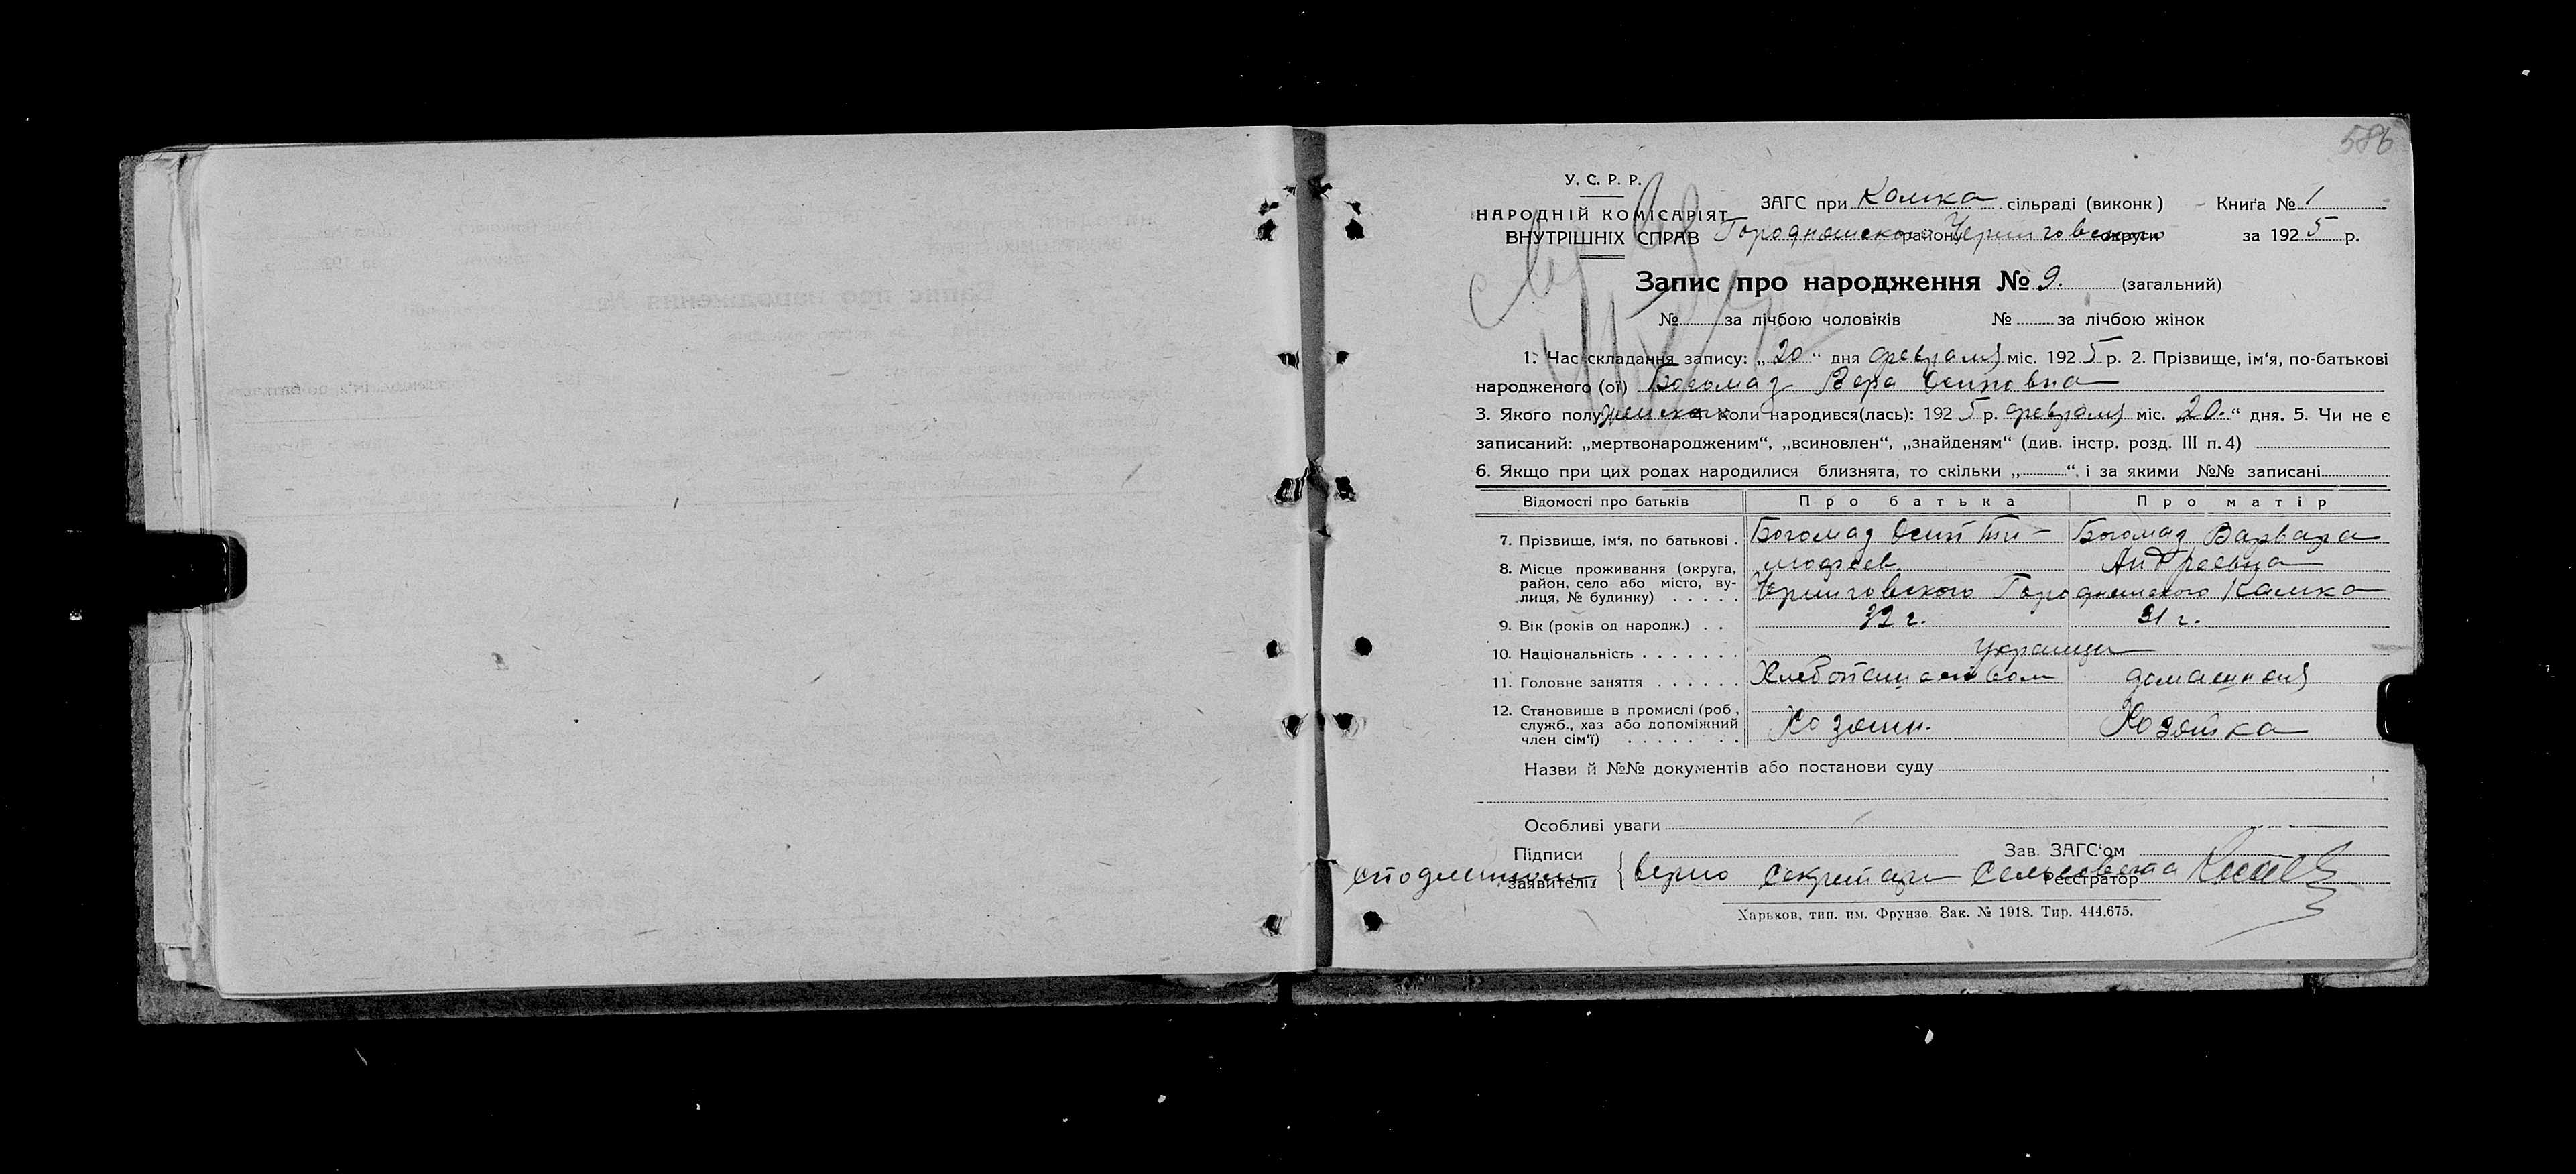 586
У. С. Р. Р.
НАРОДНІЙ КОМІСАРІЯТ
ВНУТРІШНІХ СПРАВ
ЗАГС при Камка сільраді (виконк) Книґа № 1
Городнянского району Черниговского округи за 1925 р.
Запис про народження № 9. (загальний)
№ за лічбою чоловіків № за лічбою жінок
1. Час складання запису: „20“ дня февраля міс. 1925 р. 2. Прізвище, ім'я, по-батькові
народженого (ої) Богомаз Вера Осиповна
3. Якого полу женского 4. Коли народився(лась): 1925 р. февраля міс. 20.“ дня. 5. Чи не є
записаний: „мертвонародженим“, „всиновлен“, „знайденям“ (див. інстр. розд. III п. 4)
6. Якщо при цих родах народилися близнята, то скільки „ “, і за якими №№ записані
Відомості про батьків Про батька Про матір
7. Прізвище, ім'я, по батькові . Богомаз Осип Ти- Богомаз Варвара
мофеев. Андреевна
8. Місце проживання (округа,
район, село або місто, ву-
лиця, № будинку) . . . . . Черниговского Городнянского Камка
9. Вік (років од народж.) . . 32 г. 31 г.
10. Національність . . . . . . . Украинцы
11. Головне заняття . . . . . . Хлебопашеством домашняя
12. Становище в промислі (роб.,
служб., хаз або допоміжний
член сім'ї) . . . . . . . . Хозяин. Хозяйка
Назви й №№ документів або постанови суду
Особливі уваги
Підписи Зав. ЗАГС'ом
заявителів Реєстратор
с подлинном верно Секретарь Сельсовета
Харьков, тип. им. Фрунзе. Зак. № 1918. Тир. 444.675.